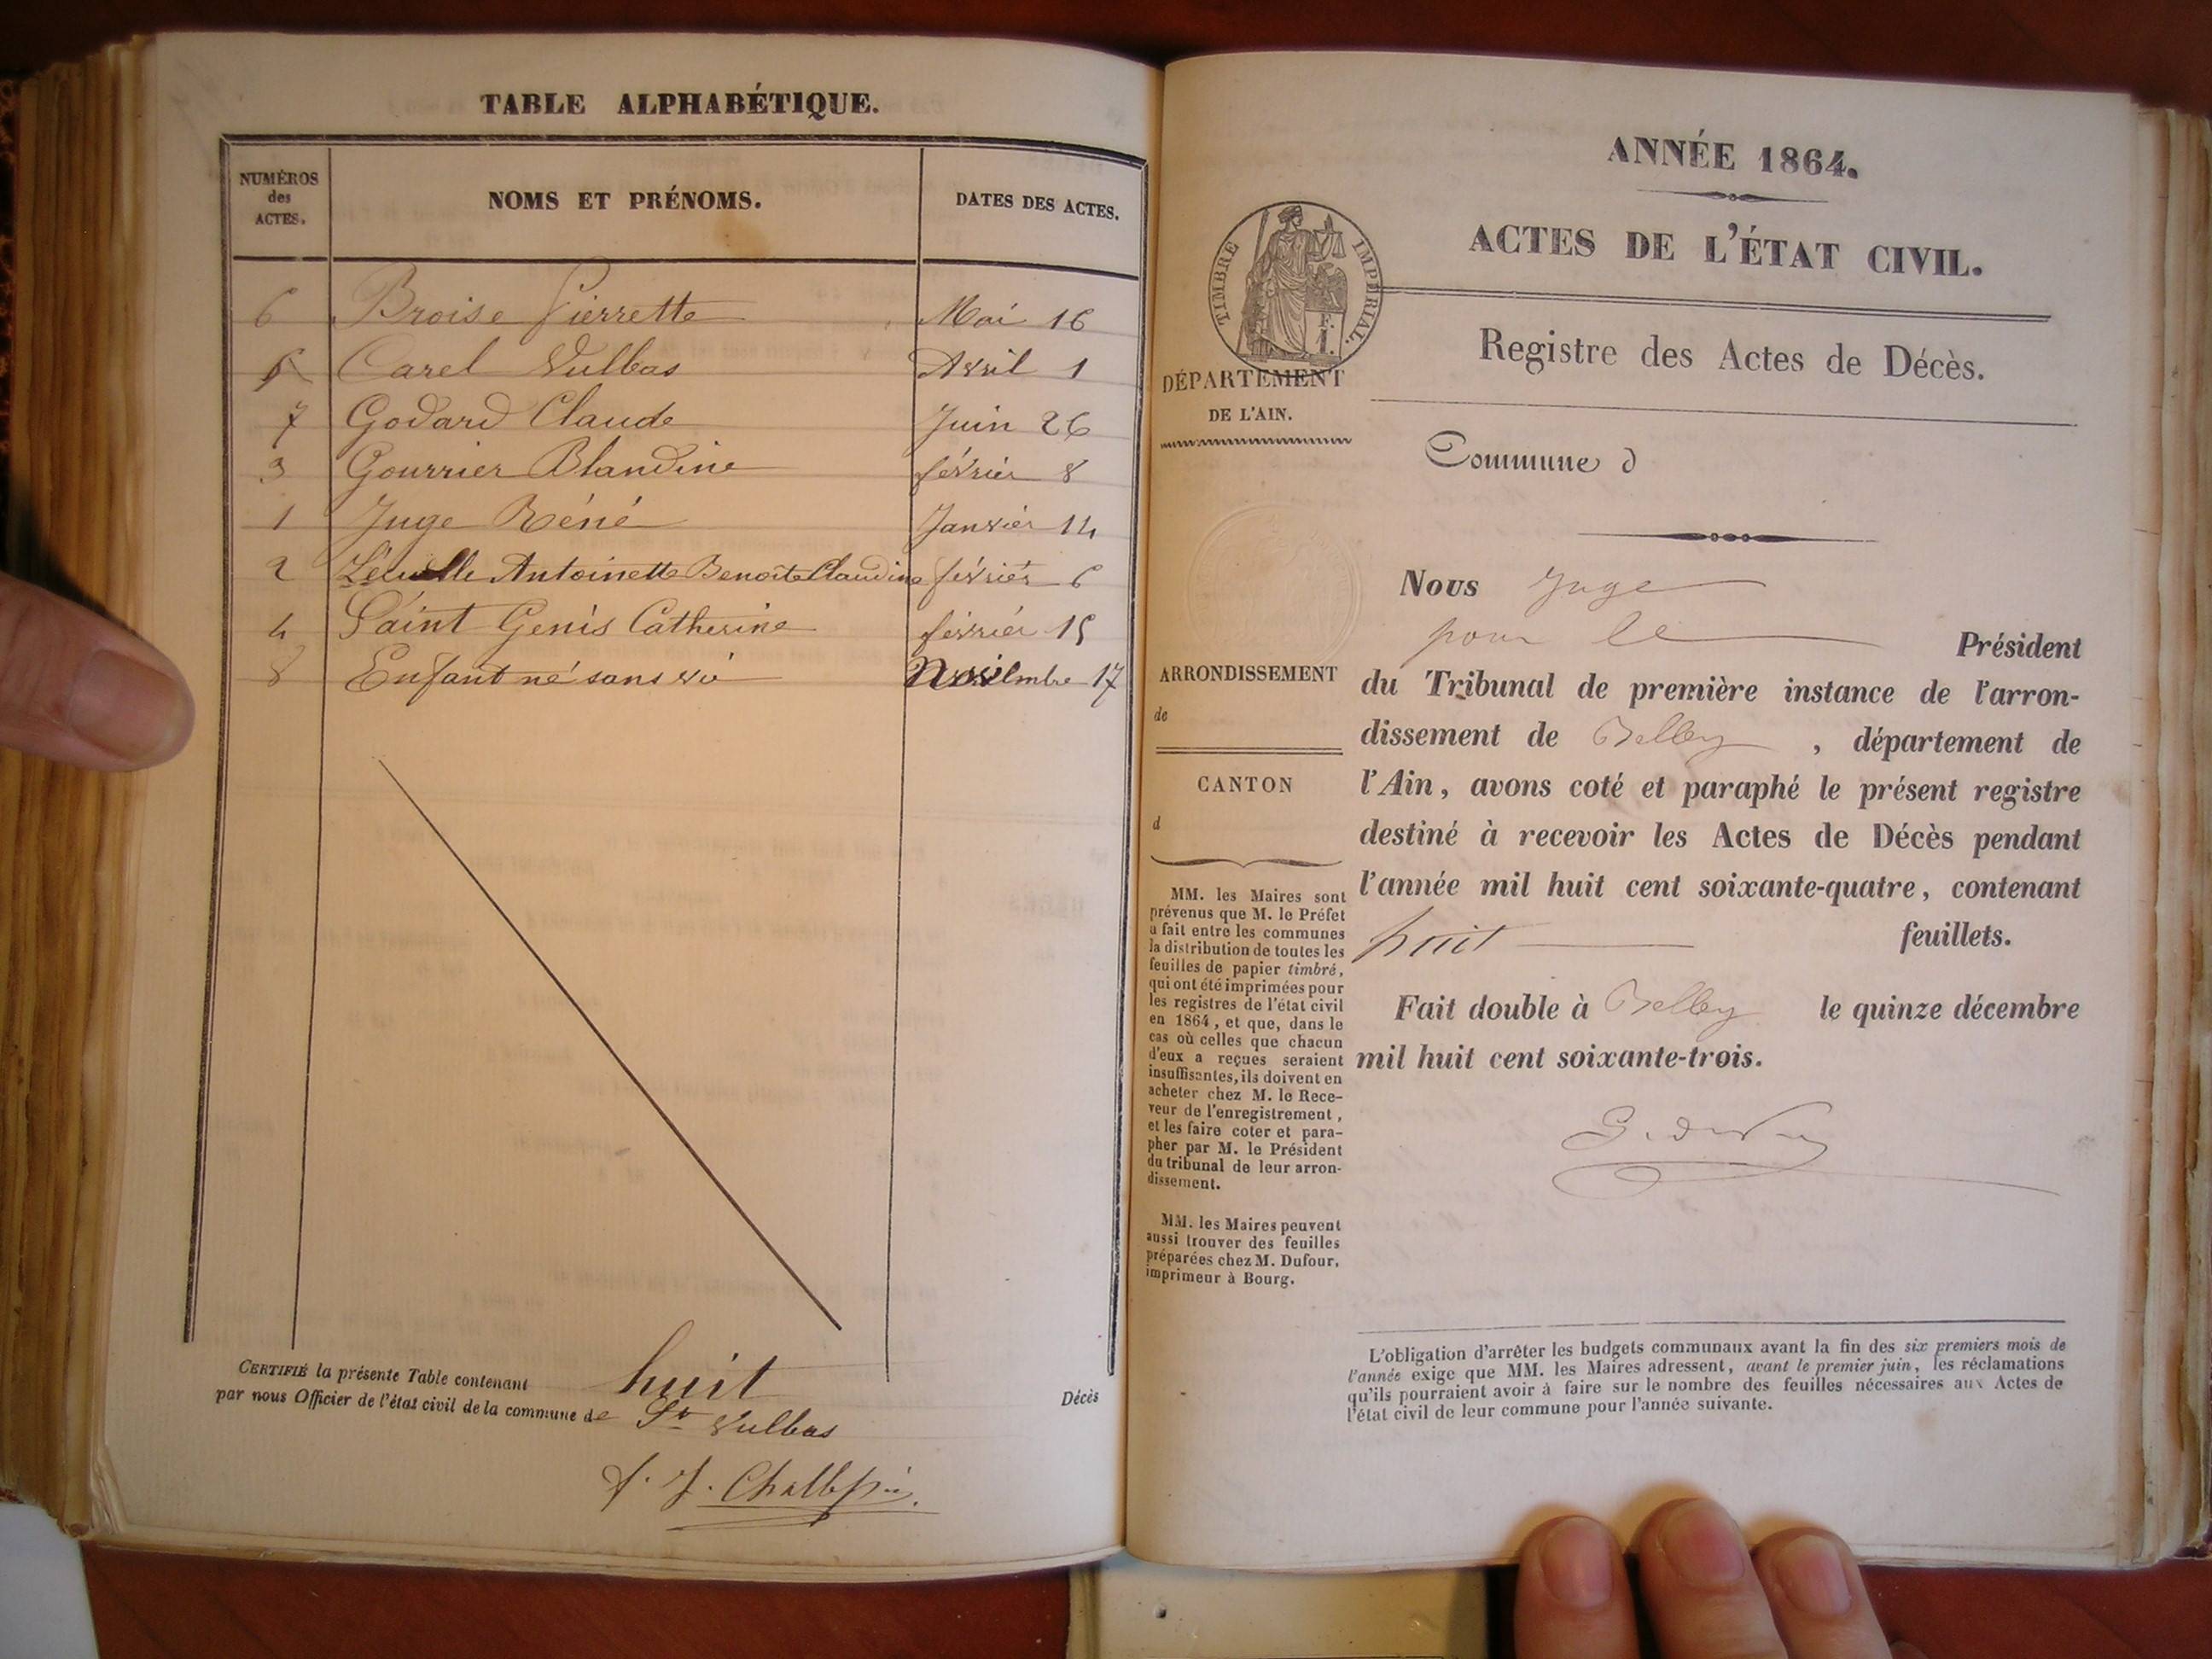 TABLE ALPHABÉTIQUE.
NUMÉROS des ACTES. NOMS ET PRÉNOMS. DATES DES ACTES.
6 Broise Pierrette Mai 16
Carel Vulbas Avril 1
7 Godard Claude Juin 26
3 Gourrier Blandine février 8
1 Juge Réné Janvier 14
2 Antoinette Benoite Claudine février 6
4 Saint Genis Catherine février 15
8 Enfant né sans vie Novembre 17
CERTIFIÉ la présente Table contenant huit Décès
par nous Officier de l'état civil de la commune de St Vulbas
ANNÉE 1864.
ACTES DE L'ÉTAT CIVIL.
TIMBRE IMPÉRIAL.
1 F.
Registre des Actes de Décès.
DÉPARTEMENT
DE L'AIN.
Commune d
Nous Juge
pour le Président
du Tribunal de première instance de l'arron-
dissement de Belley, département de
l'Ain, avons coté et paraphé le présent registre
destiné à recevoir les Actes de Décès pendant
l'année mil huit cent soixante-quatre, contenant
huit feuillets.
Fait double à Belley le quinze décembre
mil huit cent soixante-trois.
ARRONDISSEMENT
de
CANTON
d
MM. les Maires sont
prévenus que M. le Préfet
a fait entre les communes
la distribution de toutes les
feuilles de papier timbré,
qui ont été imprimées pour
les registres de l'état civil
en 1864, et que, dans le
cas où celles que chacun
d'eux a reçues seraient
insuffisantes, ils doivent en
acheter chez M. le Rece-
veur de l'enregistrement,
et les faire coter et para-
pher par M. le Président
du tribunal de leur arron-
dissement.
MM. les Maires peuvent
aussi trouver des feuilles
préparées chez M. Dufour,
imprimeur à Bourg.
L'obligation d'arrêter les budgets communaux avant la fin des six premiers mois de
l'année exige que MM. les Maires adressent, avant le premier juin, les réclamations
qu'ils pourraient avoir à faire sur le nombre des feuilles nécessaires aux Actes de
l'état civil de leur commune pour l'année suivante.